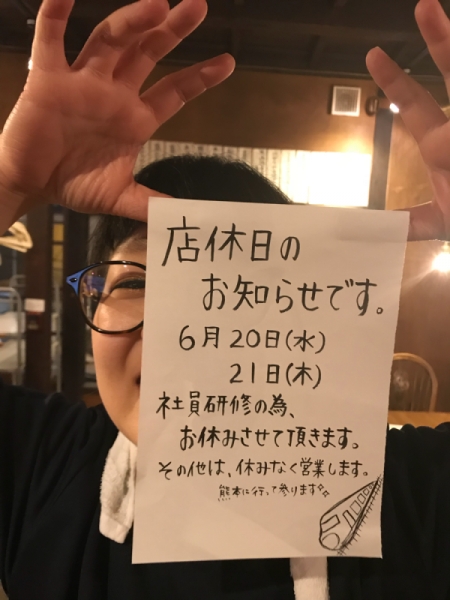 店休日の
お知らせです。
6月20日(水)
21日(木)
社員研修の為、
お休みさせて頂きます。
その他は、休みなく営業します。
熊本に行って参ります